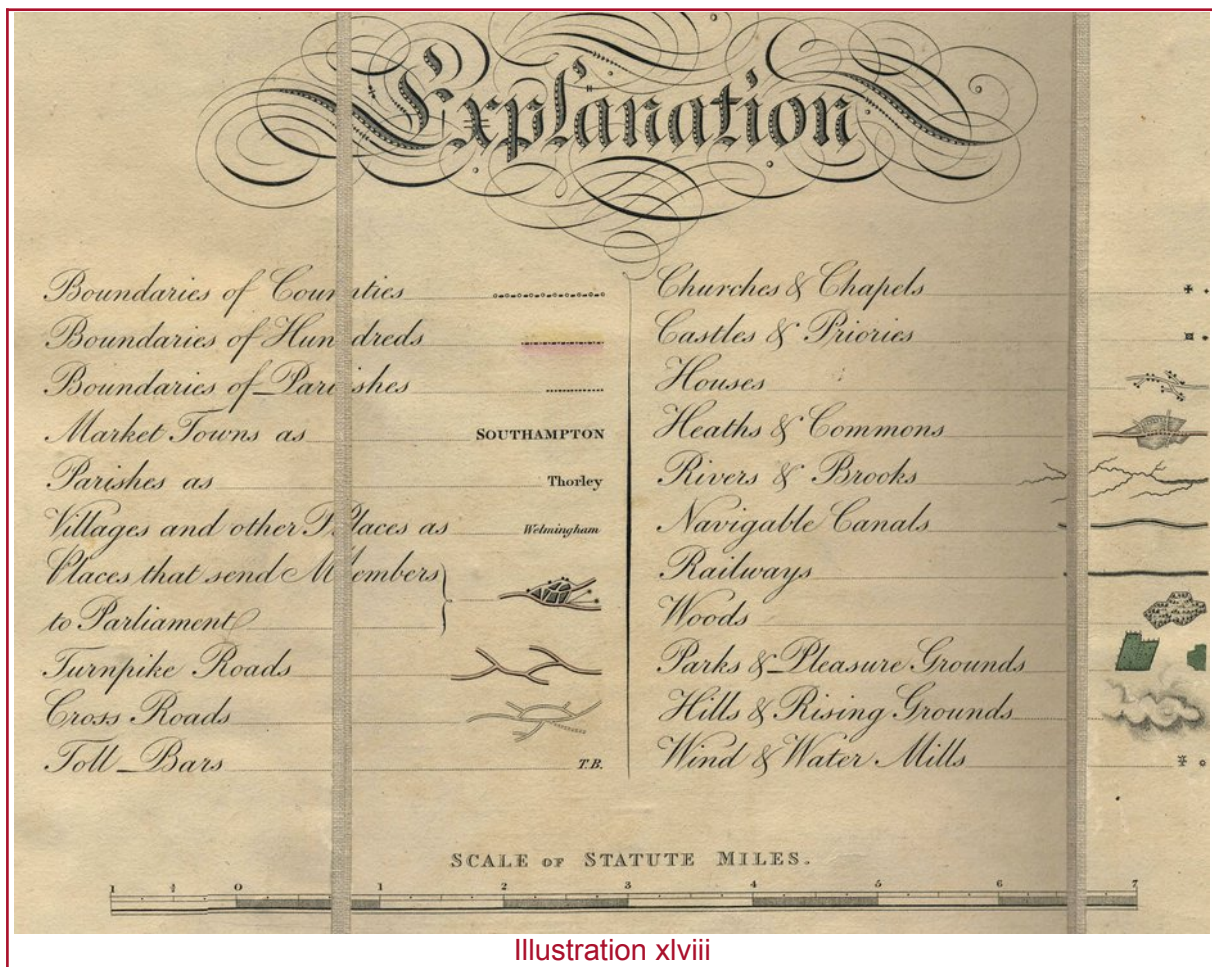 Explanation
Boundaries of Counties
Boundaries of Hundreds
Boundaries of Parishes
Market Towns as SOUTHAMPTON
Parishes as Thorley
Villages and other Places as Welmingham
Places that send Members
to Parliament
Turnpike Roads
Cross Roads
Toll Bars T.B.
Churches & Chapels
Castles & Priories
Houses
Heaths & Commons
Rivers & Brooks
Navigable Canals
Railways
Woods
Parks & Pleasure Grounds
Hills & Rising Grounds
Wind & Water Mills
SCALE OF STATUTE MILES.
1 0 1 2 3 4 5 6 7
Illustration xlviii